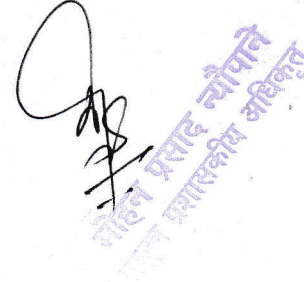 मोहन प्रसाद न्यौपाने
प्रशासकीय अधिकृत